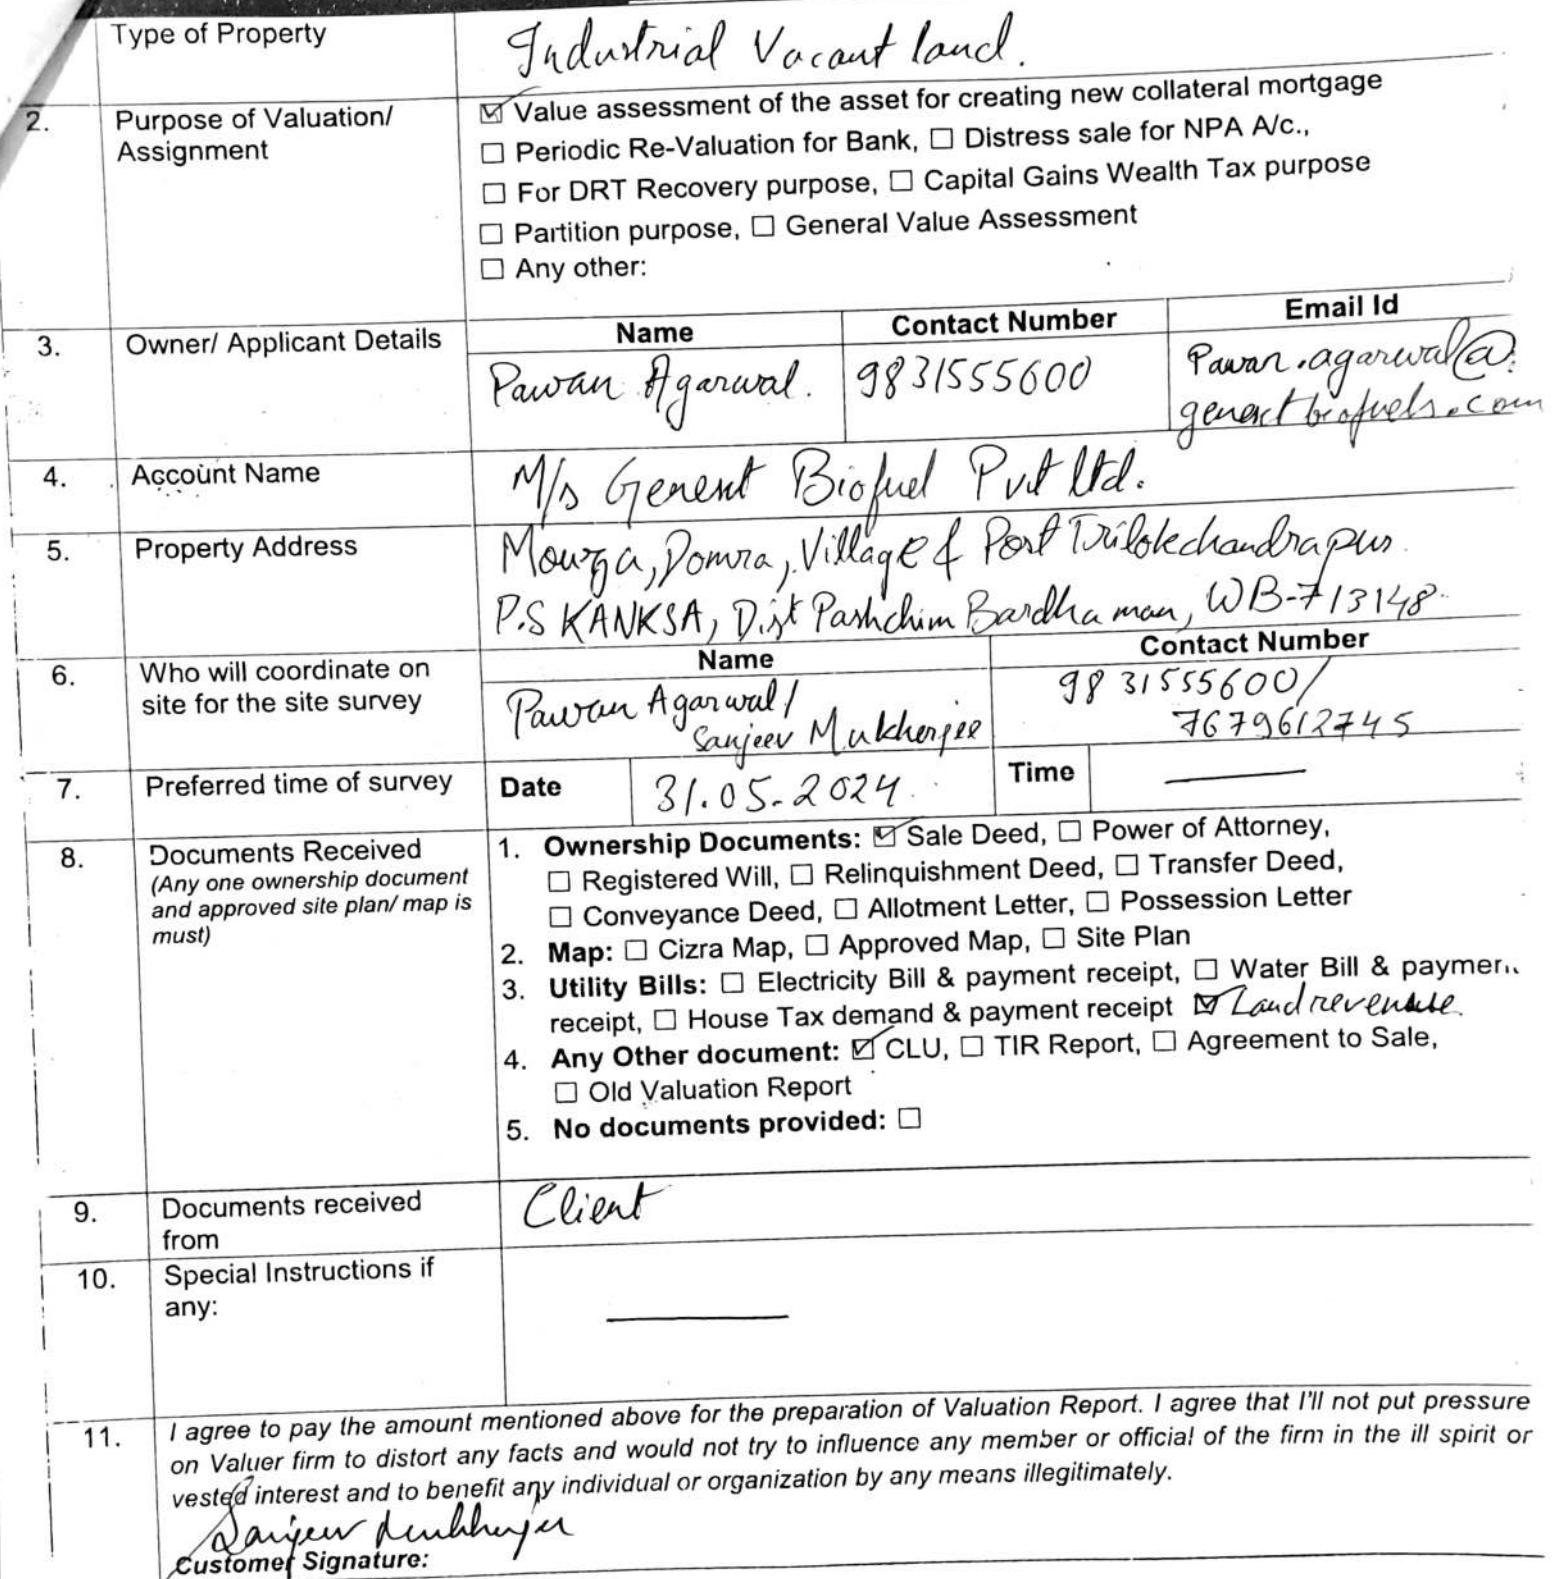 Type of Property
Industrial Vacant land.
2. Purpose of Valuation/ Assignment
☑ Value assessment of the asset for creating new collateral mortgage
☐ Periodic Re-Valuation for Bank, ☐ Distress sale for NPA A/c.,
☐ For DRT Recovery purpose, ☐ Capital Gains Wealth Tax purpose
☐ Partition purpose, ☐ General Value Assessment
☐ Any other:
3. Owner/ Applicant Details
Name Contact Number Email Id
Pawan Agarwal. 9831555600 Pawan.agarwal@
biofuels.com
4. Account Name
M/s Genext Biofuel Pvt ltd.
5. Property Address
Mouza, Domra, Village & Post Trilokchandrapur.
P.S KANKSA, Dist Pashchim Bardhaman, WB-713148.
6. Who will coordinate on
site for the site survey
Name Contact Number
Pawan Agarwal/ 9831555600/
Sanjeev Mukherjee 7679612745
7. Preferred time of survey Date 31.05.2024. Time
8. Documents Received
(Any one ownership document
and approved site plan/ map is
must)
1. Ownership Documents: ☑ Sale Deed, ☐ Power of Attorney,
☐ Registered Will, ☐ Relinquishment Deed, ☐ Transfer Deed,
☐ Conveyance Deed, ☐ Allotment Letter, ☐ Possession Letter
2. Map: ☐ Cizra Map, ☐ Approved Map, ☐ Site Plan
3. Utility Bills: ☐ Electricity Bill & payment receipt, ☐ Water Bill &
receipt, ☐ House Tax demand & payment receipt ☑ Land revenue.
4. Any Other document: ☑ CLU, ☐ TIR Report, ☐ Agreement to Sale,
☐ Old Valuation Report
5. No documents provided: ☐
9. Documents received
from
Client
10. Special Instructions if
any:
11. I agree to pay the amount mentioned above for the preparation of Valuation Report. I agree that I'll not put pressure
on Valuer firm to distort any facts and would not try to influence any member or official of the firm in the ill spirit or
vested interest and to benefit any individual or organization by any means illegitimately.
Sanjeev Mukherjee
Customer Signature: